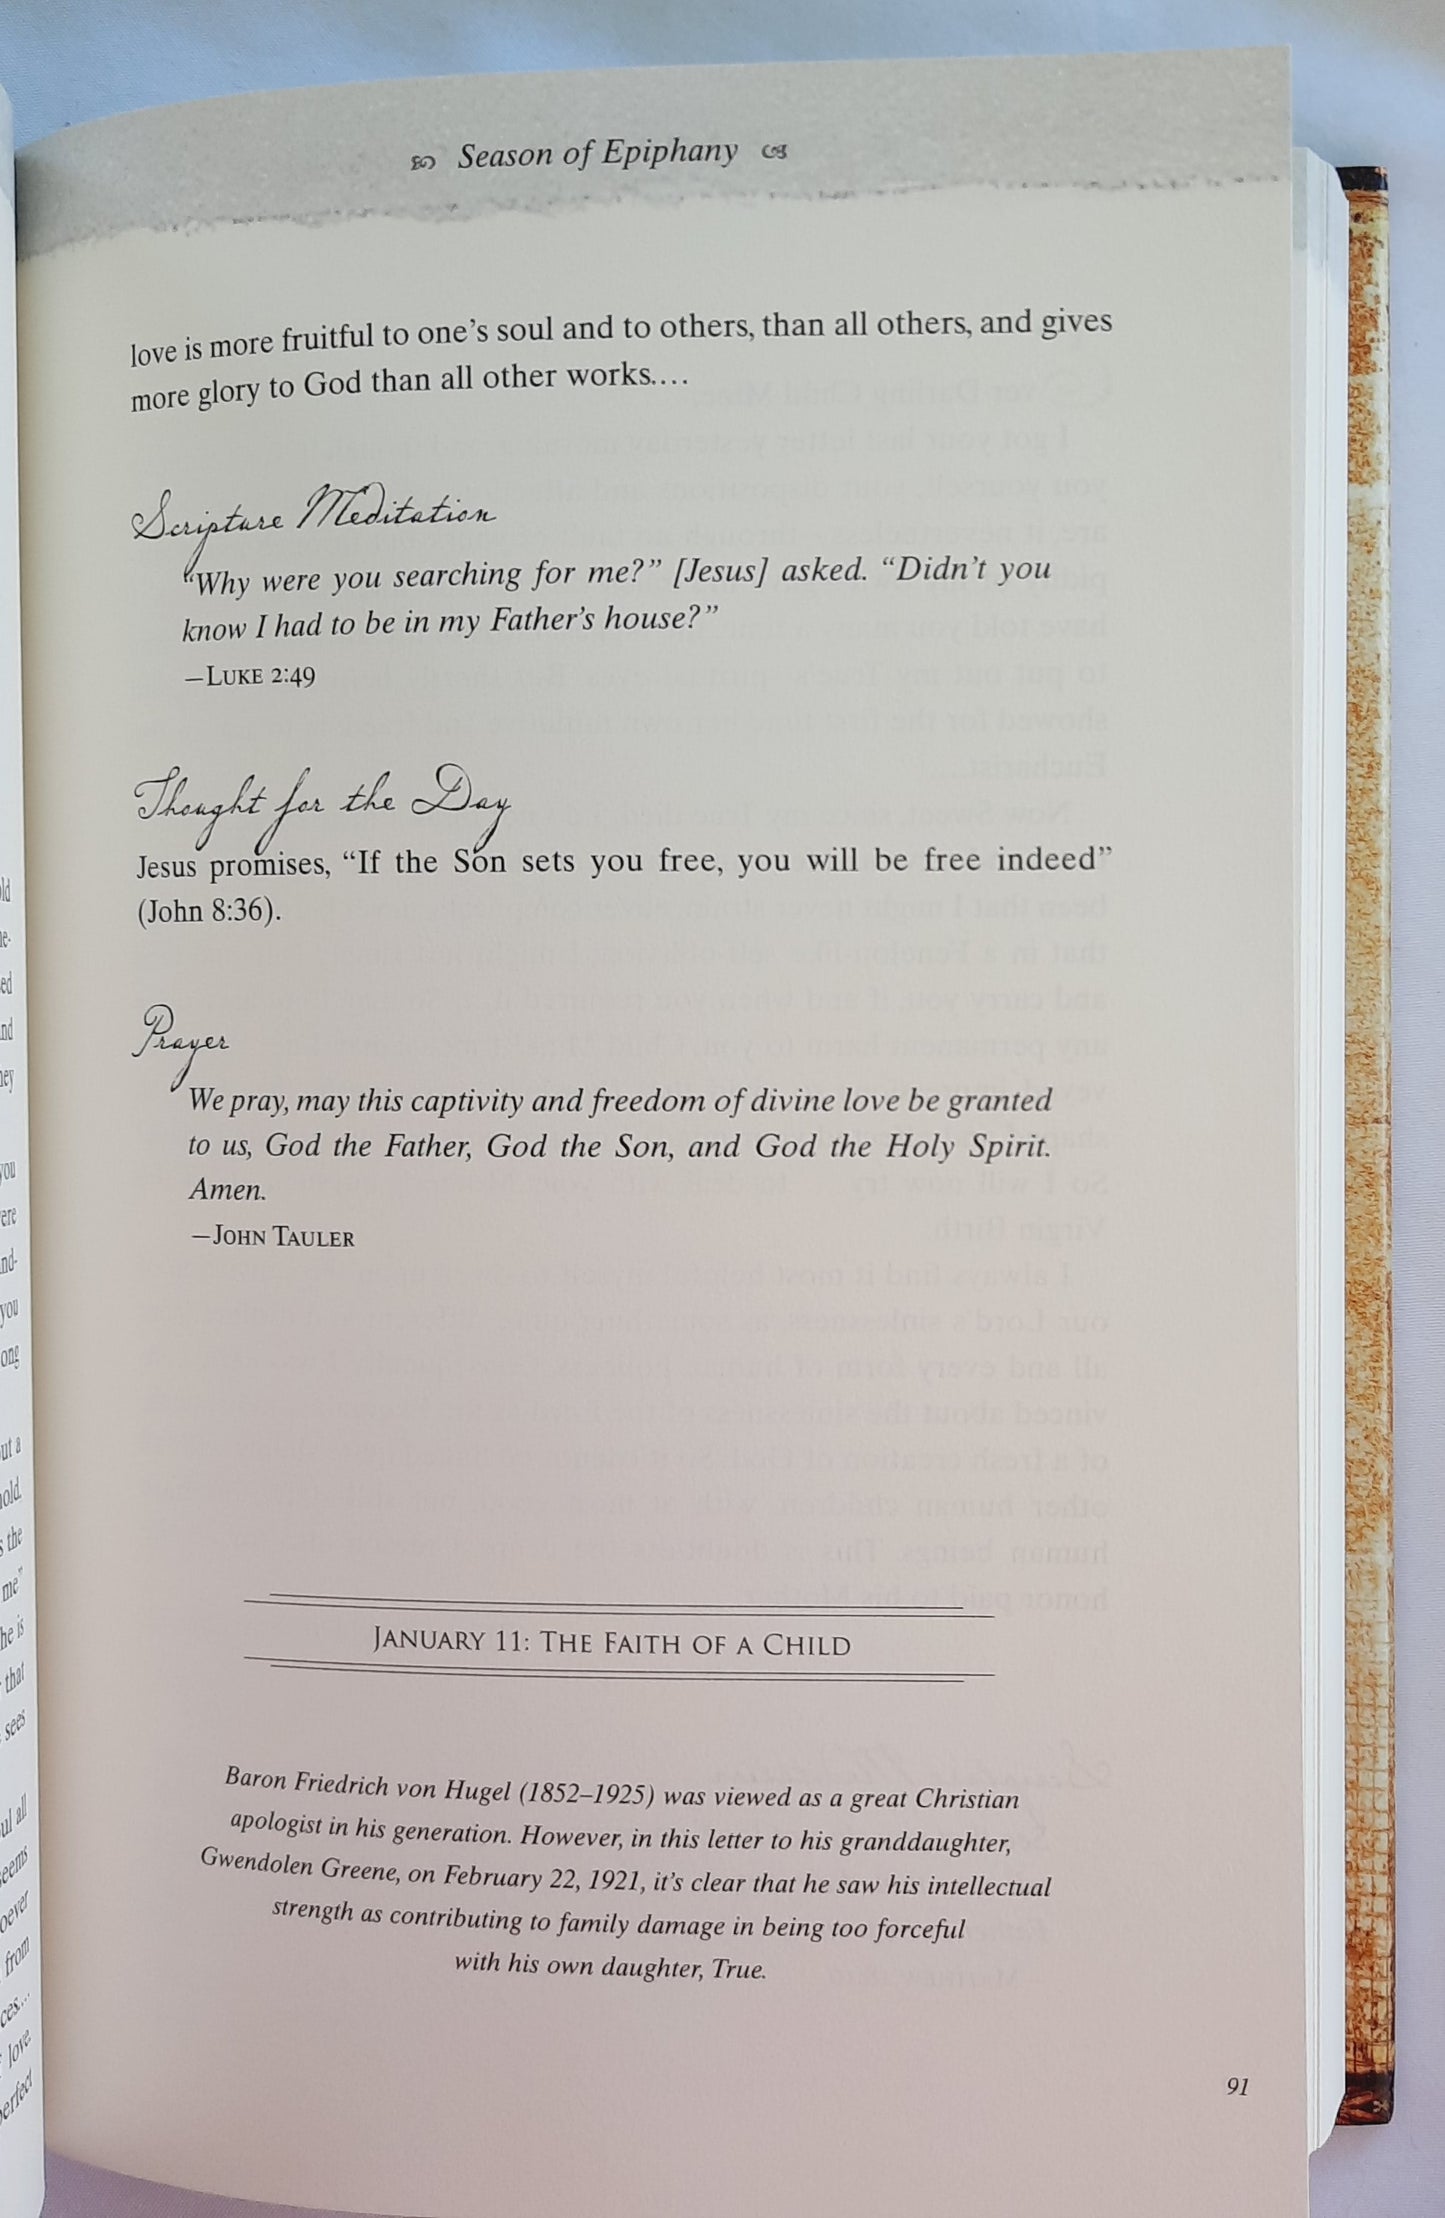 Season of Epiphany
love is more fruitful to one's soul and to others, than all others, and gives
more glory to God than all other works....
Scripture Meditation
“Why were you searching for me?” [Jesus] asked. “Didn't you
know I had to be in my Father's house?”
—LUKE 2:49
Thought for the Day
Jesus promises, “If the Son sets you free, you will be free indeed”
(John 8:36).
Prayer
We pray, may this captivity and freedom of divine love be granted
to us, God the Father, God the Son, and God the Holy Spirit.
Amen.
—JOHN TAULER
JANUARY 11: THE FAITH OF A CHILD
Baron Friedrich von Hugel (1852–1925) was viewed as a great Christian
apologist in his generation. However, in this letter to his granddaughter,
Gwendolen Greene, on February 22, 1921, it's clear that he saw his intellectual
strength as contributing to family damage in being too forceful
with his own daughter, True.
91